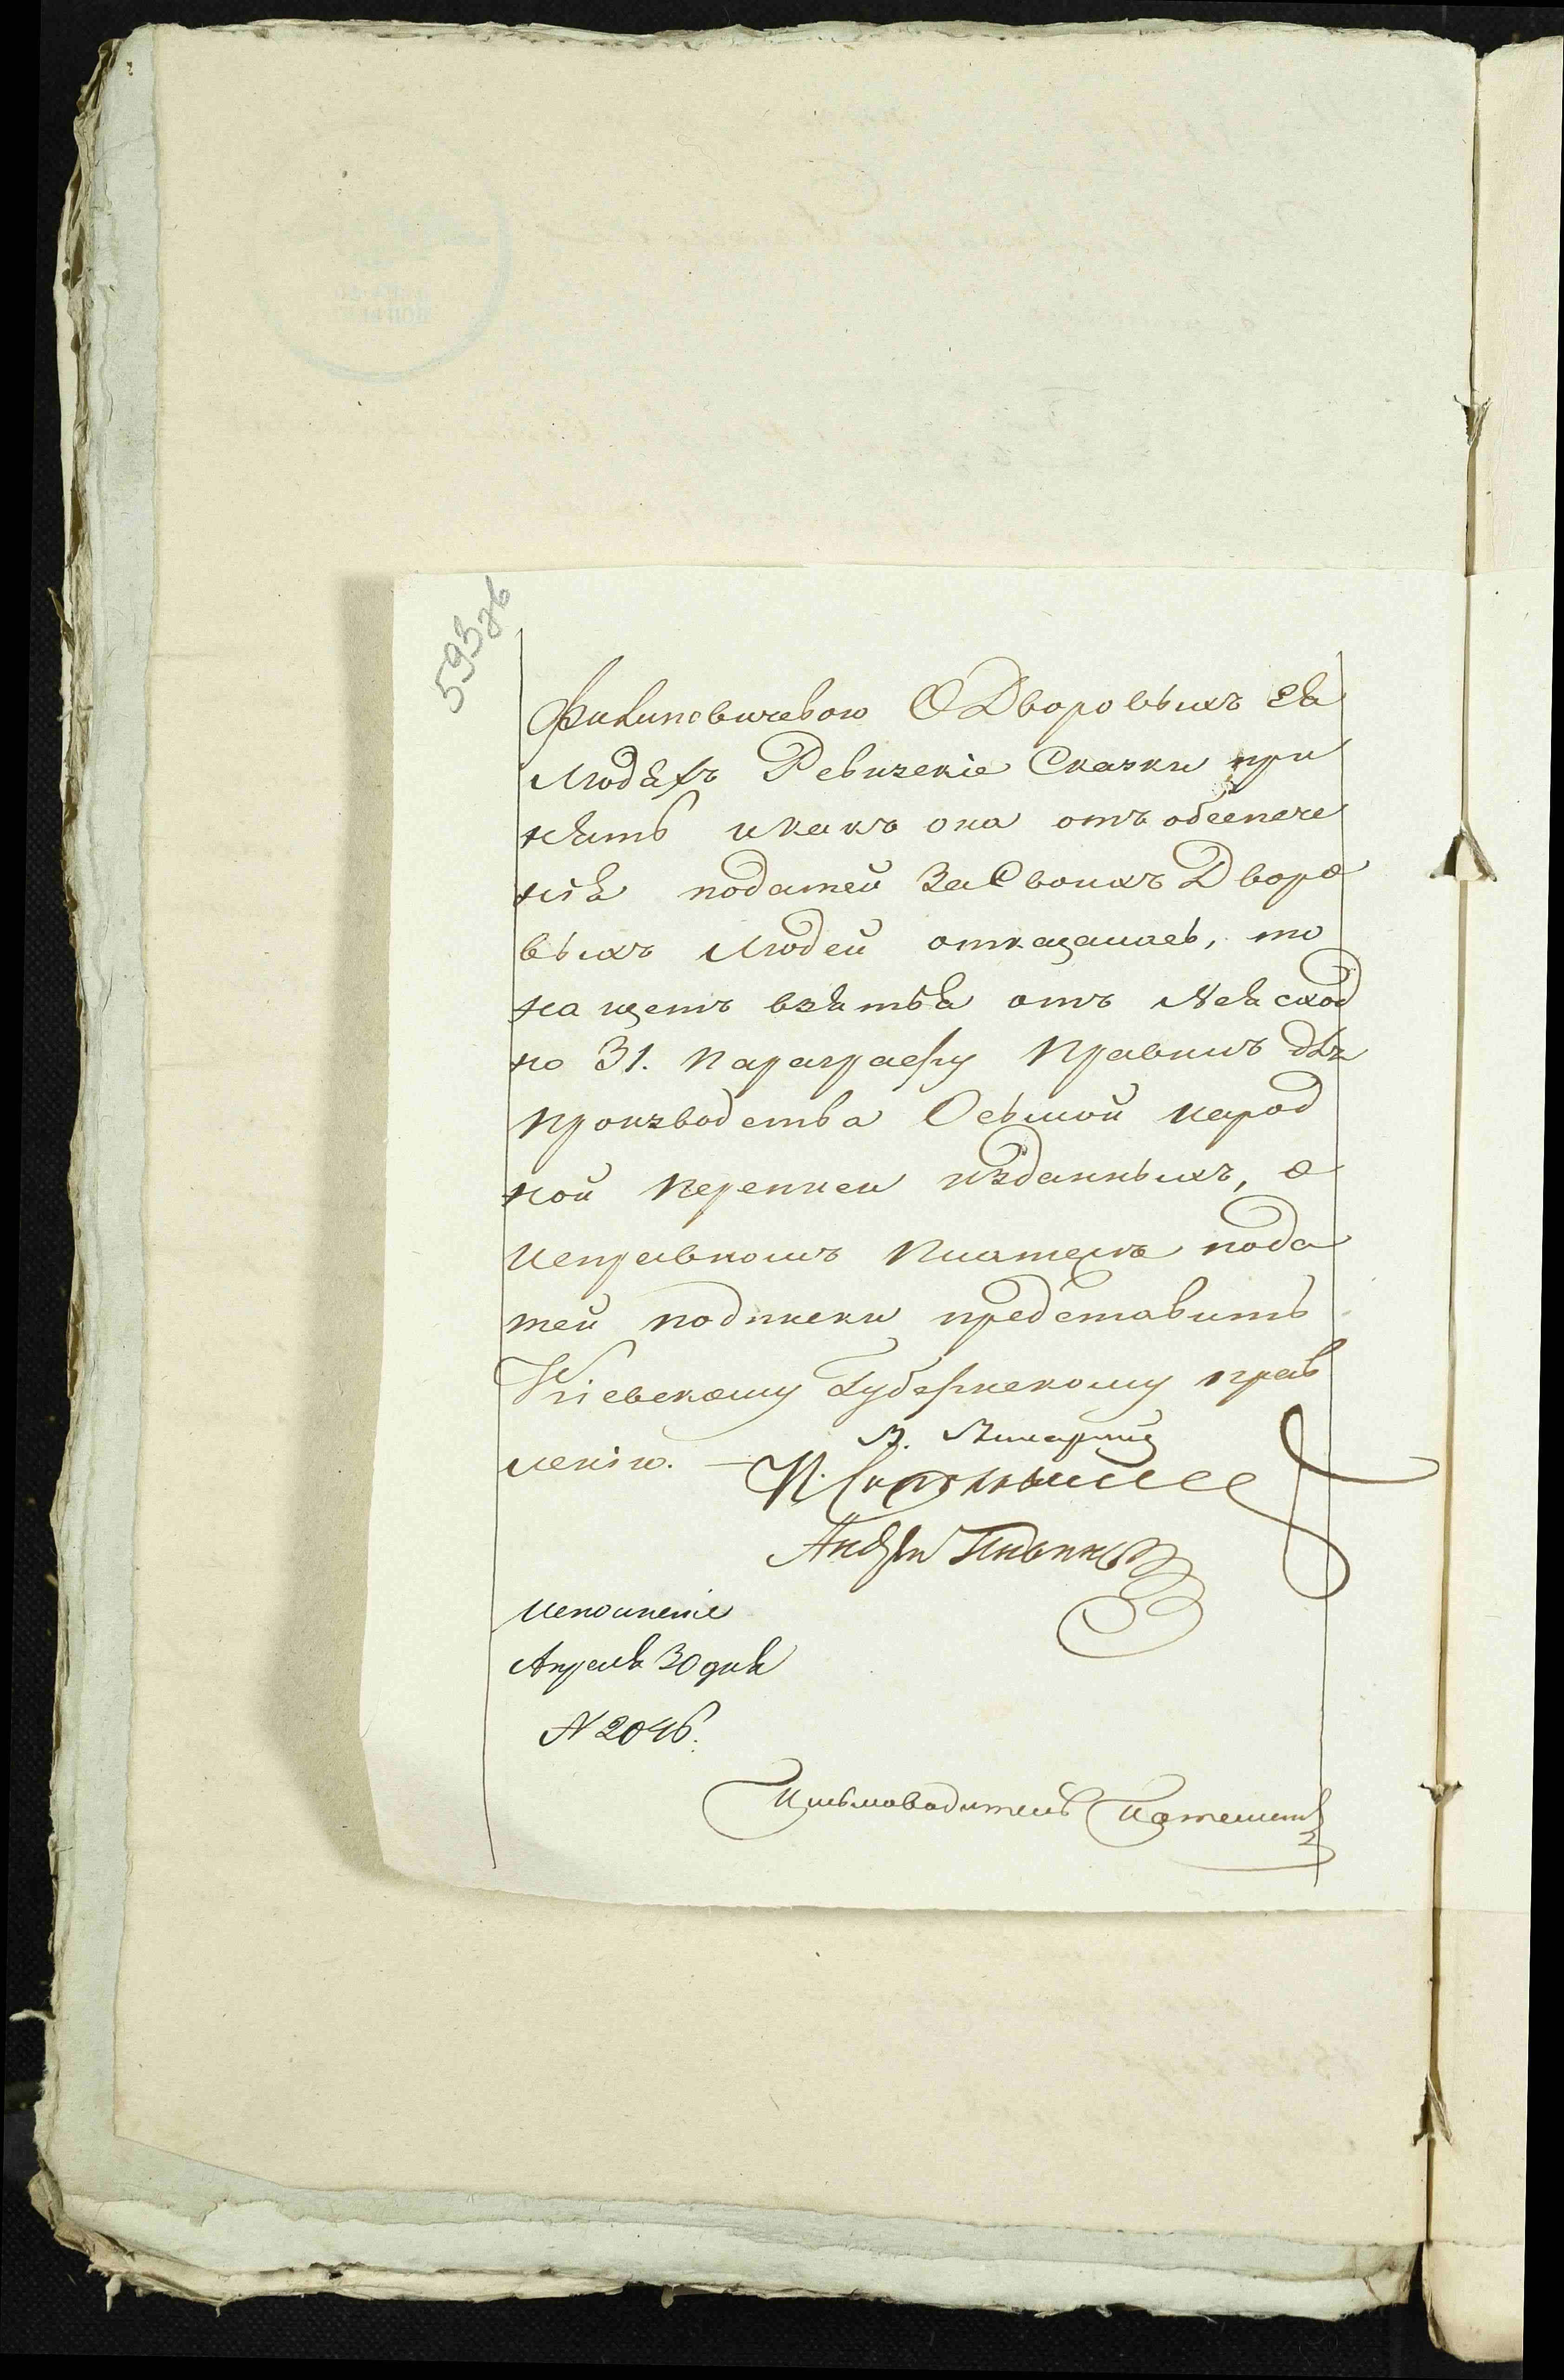 593 зв
Филиповичевою О Дворовыхъ ея
Людяхъ Ревизскіе Сказки при
нять и какъ она отъ обеспече
нія податей За Своихъ Дворо
выхъ Людей отказалась, то
на щетъ взятья отъ Нея сход
но 31. Параграфу Правилъ для
производства Осьмой народ
ной переписи изданныхъ, о
исправномъ платежѣ пода
тей подписки представить
Кіевскому Губернскому прав
ленію.
Исполненіе
Апреля 30 дня
N 2046.
Письмоводитель